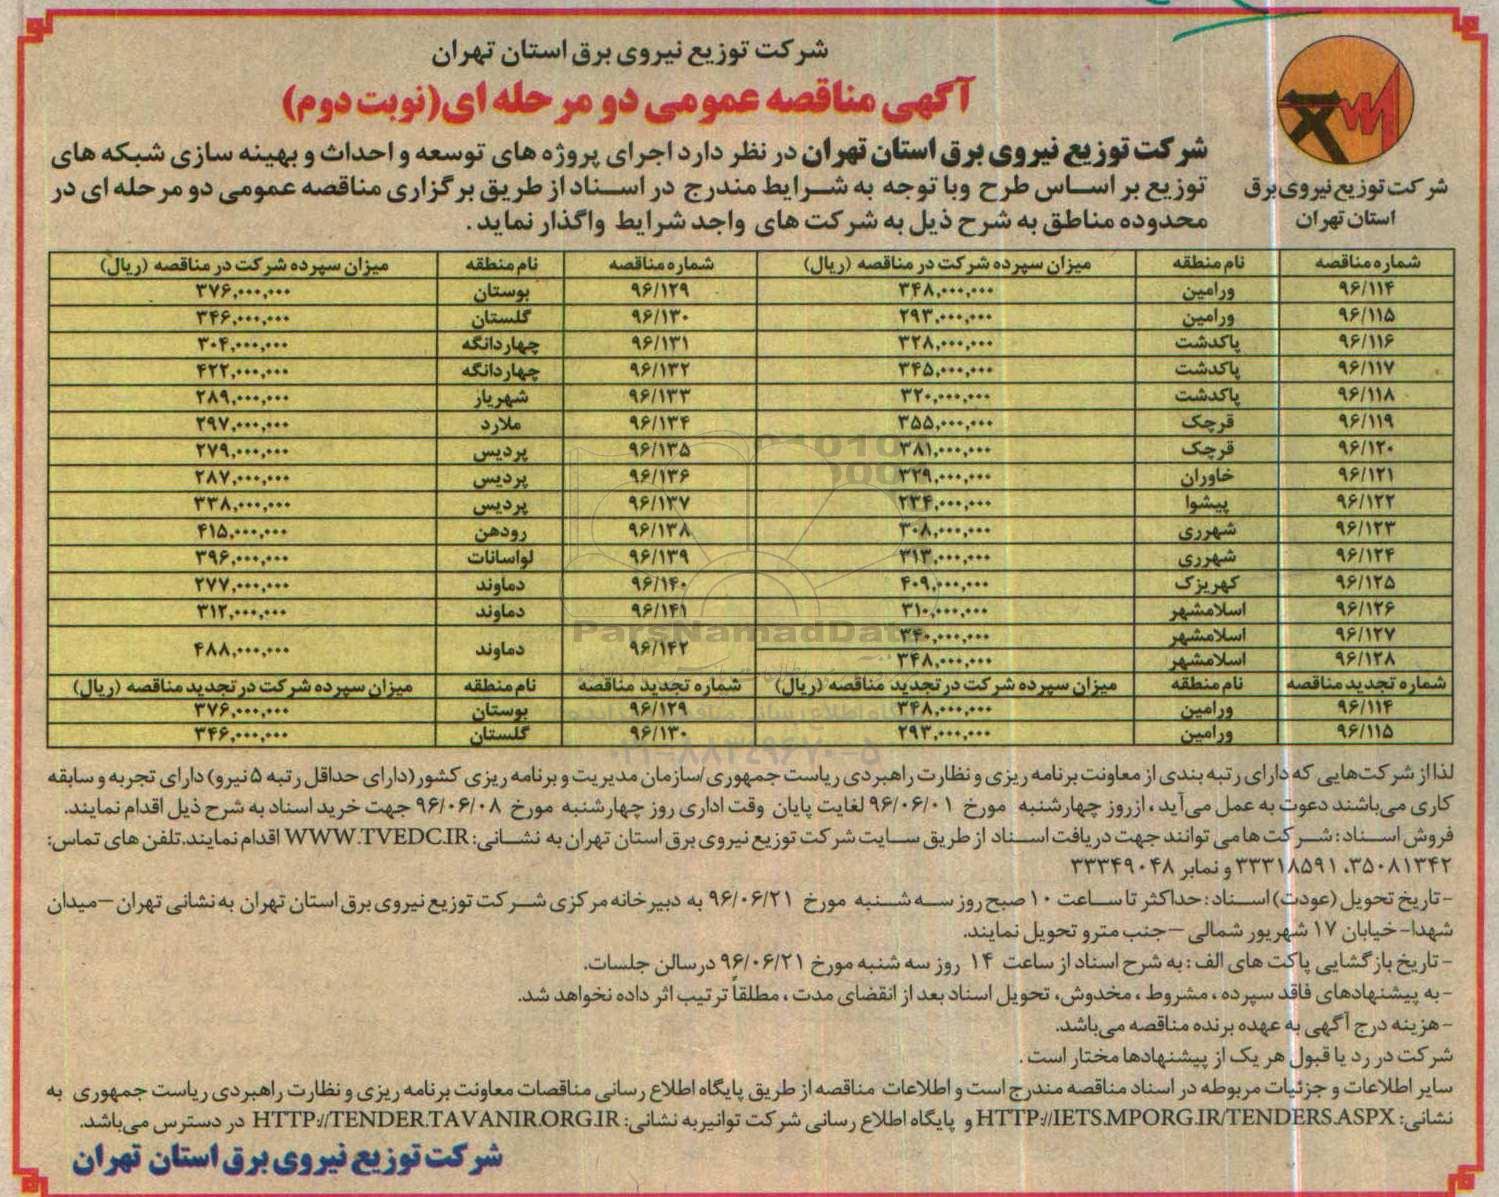 شرکت توزیع نیروی برق استان تهران
آگهی مناقصه عمومی دو مرحله ای (نوبت دوم)
شرکت توزیع نیروی برق
استان تهران
شرکت توزیع نیروی برق استان تهران در نظر دارد اجرای پروژه های توسعه و احداث و بهینه سازی شبکه های
توزیع بر اساس طرح وبا توجه به شرایط مندرج در اسناد از طریق برگزاری مناقصه عمومی دو مرحله ای در
محدوده مناطق به شرح ذیل به شرکت های واجد شرایط واگذار نماید.
شماره مناقصه نام منطقه میزان سپرده شرکت در مناقصه (ریال) شماره مناقصه نام منطقه میزان سپرده شرکت در مناقصه (ریال)
۹۶/۱۱۴ ورامین ۳۴۸,۰۰۰,۰۰۰ ۹۶/۱۲۹ بوستان ۳۷۶,۰۰۰,۰۰۰
۹۶/۱۱۵ ورامین ۲۹۳,۰۰۰,۰۰۰ ۹۶/۱۳۰ گلستان ۳۴۶,۰۰۰,۰۰۰
۹۶/۱۱۶ پاکدشت ۳۲۸,۰۰۰,۰۰۰ ۹۶/۱۳۱ چهاردانگه ۳۰۴,۰۰۰,۰۰۰
۹۶/۱۱۷ پاکدشت ۳۴۵,۰۰۰,۰۰۰ ۹۶/۱۳۲ چهاردانگه ۴۲۲,۰۰۰,۰۰۰
۹۶/۱۱۸ پاکدشت ۳۲۰,۰۰۰,۰۰۰ ۹۶/۱۳۳ شهریار ۲۸۹,۰۰۰,۰۰۰
۹۶/۱۱۹ قرچک ۳۵۵,۰۰۰,۰۰۰ ۹۶/۱۳۴ ملارد ۲۹۷,۰۰۰,۰۰۰
۹۶/۱۲۰ قرچک ۳۸۱,۰۰۰,۰۰۰ ۹۶/۱۳۵ پردیس ۲۷۹,۰۰۰,۰۰۰
۹۶/۱۲۱ خاوران ۳۲۹,۰۰۰,۰۰۰ ۹۶/۱۳۶ پردیس ۲۸۷,۰۰۰,۰۰۰
۹۶/۱۲۲ پیشوا ۲۳۴,۰۰۰,۰۰۰ ۹۶/۱۳۷ پردیس ۳۳۸,۰۰۰,۰۰۰
۹۶/۱۲۳ شهرری ۳۰۸,۰۰۰,۰۰۰ ۹۶/۱۳۸ رودهن ۴۱۵,۰۰۰,۰۰۰
۹۶/۱۲۴ شهرری ۳۱۳,۰۰۰,۰۰۰ ۹۶/۱۳۹ لواسانات ۳۹۶,۰۰۰,۰۰۰
۹۶/۱۲۵ کهریزک ۴۰۹,۰۰۰,۰۰۰ ۹۶/۱۴۰ دماوند ۲۷۷,۰۰۰,۰۰۰
۹۶/۱۲۶ اسلامشهر ۳۱۰,۰۰۰,۰۰۰ ۹۶/۱۴۱ دماوند ۳۱۲,۰۰۰,۰۰۰
۹۶/۱۲۷ اسلامشهر ۳۴۰,۰۰۰,۰۰۰ ۹۶/۱۴۲ دماوند ۴۸۸,۰۰۰,۰۰۰
۹۶/۱۲۸ اسلامشهر ۳۴۸,۰۰۰,۰۰۰
شماره تجدید مناقصه نام منطقه میزان سپرده شرکت در تجدید مناقصه (ریال) شماره تجدید مناقصه نام منطقه میزان سپرده شرکت در تجدید مناقصه (ریال)
۹۶/۱۱۴ ورامین ۳۴۸,۰۰۰,۰۰۰ ۹۶/۱۲۹ بوستان ۳۷۶,۰۰۰,۰۰۰
۹۶/۱۱۵ ورامین ۲۹۳,۰۰۰,۰۰۰ ۹۶/۱۳۰ گلستان ۳۴۶,۰۰۰,۰۰۰
ParsNamadData
لذا از شرکت‌هایی که دارای رتبه بندی از معاونت برنامه ریزی و نظارت راهبردی ریاست جمهوری/سازمان مدیریت و برنامه ریزی کشور(دارای حداقل رتبه ۵ نیرو) دارای تجربه و سابقه
کاری می‌باشند دعوت به عمل می‌آید، ازروز چهارشنبه مورخ ۹۶/۰۶/۰۱ لغایت پایان وقت اداری روز چهارشنبه مورخ ۹۶/۰۶/۰۸ جهت خرید اسناد به شرح ذیل اقدام نمایند.
فروش اسناد: شرکت ها می توانند جهت دریافت اسناد از طریق سایت شرکت توزیع نیروی برق استان تهران به نشانی: WWW.TVEDC.IR اقدام نمایند.تلفن های تماس:
۳۵۰۸۱۳۴۲، ۳۳۳۱۸۵۹۱ و نمابر ۳۳۳۴۹۰۴۸
-تاریخ تحویل (عودت) اسناد: حداکثر تا ساعت ۱۰ صبح روز سه شنبه مورخ ۹۶/۰۶/۲۱ به دبیرخانه مرکزی شرکت توزیع نیروی برق استان تهران به نشانی تهران –میدان
شهدا- خیابان ۱۷ شهریور شمالی –جنب مترو تحویل نمایند.
- تاریخ بازگشایی پاکت های الف: به شرح اسناد از ساعت ۱۴ روز سه شنبه مورخ ۹۶/۰۶/۲۱ درسالن جلسات.
- به پیشنهادهای فاقد سپرده، مشروط، مخدوش، تحویل اسناد بعد از انقضای مدت، مطلقاً ترتیب اثر داده نخواهد شد.
- هزینه درج آگهی به عهده برنده مناقصه می‌باشد.
شرکت در رد یا قبول هر یک از پیشنهادها مختار است.
سایر اطلاعات و جزئیات مربوطه در اسناد مناقصه مندرج است و اطلاعات مناقصه از طریق پایگاه اطلاع رسانی مناقصات معاونت برنامه ریزی و نظارت راهبردی ریاست جمهوری به
نشانی: HTTP://IETS.MPORG.IR/TENDERS.ASPX و پایگاه اطلاع رسانی شرکت توانیر به نشانی: HTTP://TENDER.TAVANIR.ORG.IR در دسترس می‌باشد.
شرکت توزیع نیروی برق استان تهران